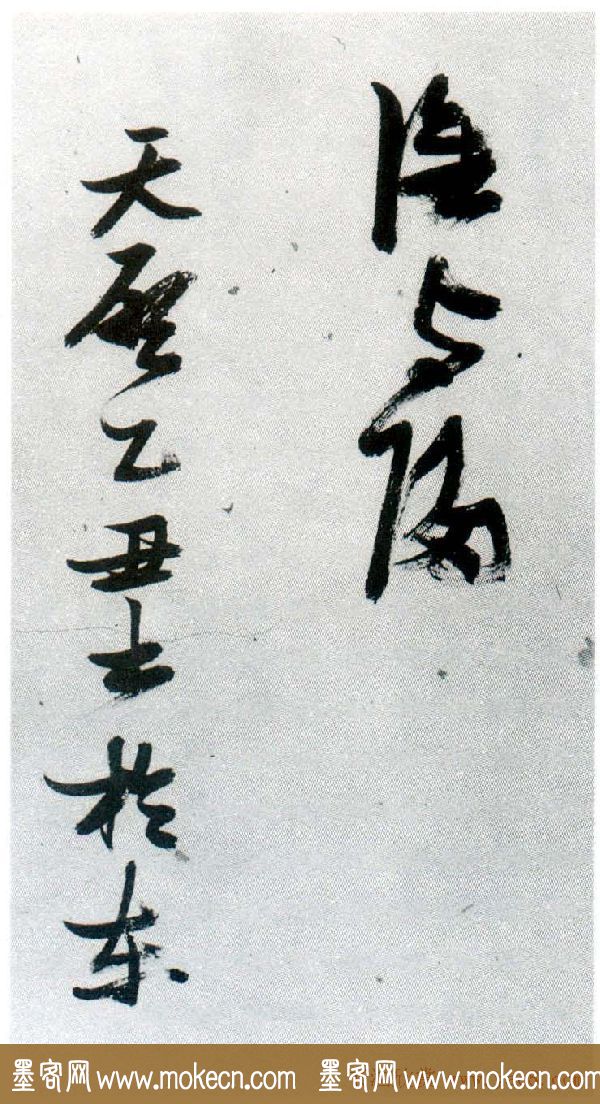 与
天啓乙丑於東
墨客网 www.mokecn.com 墨客网 www.mokecn.com